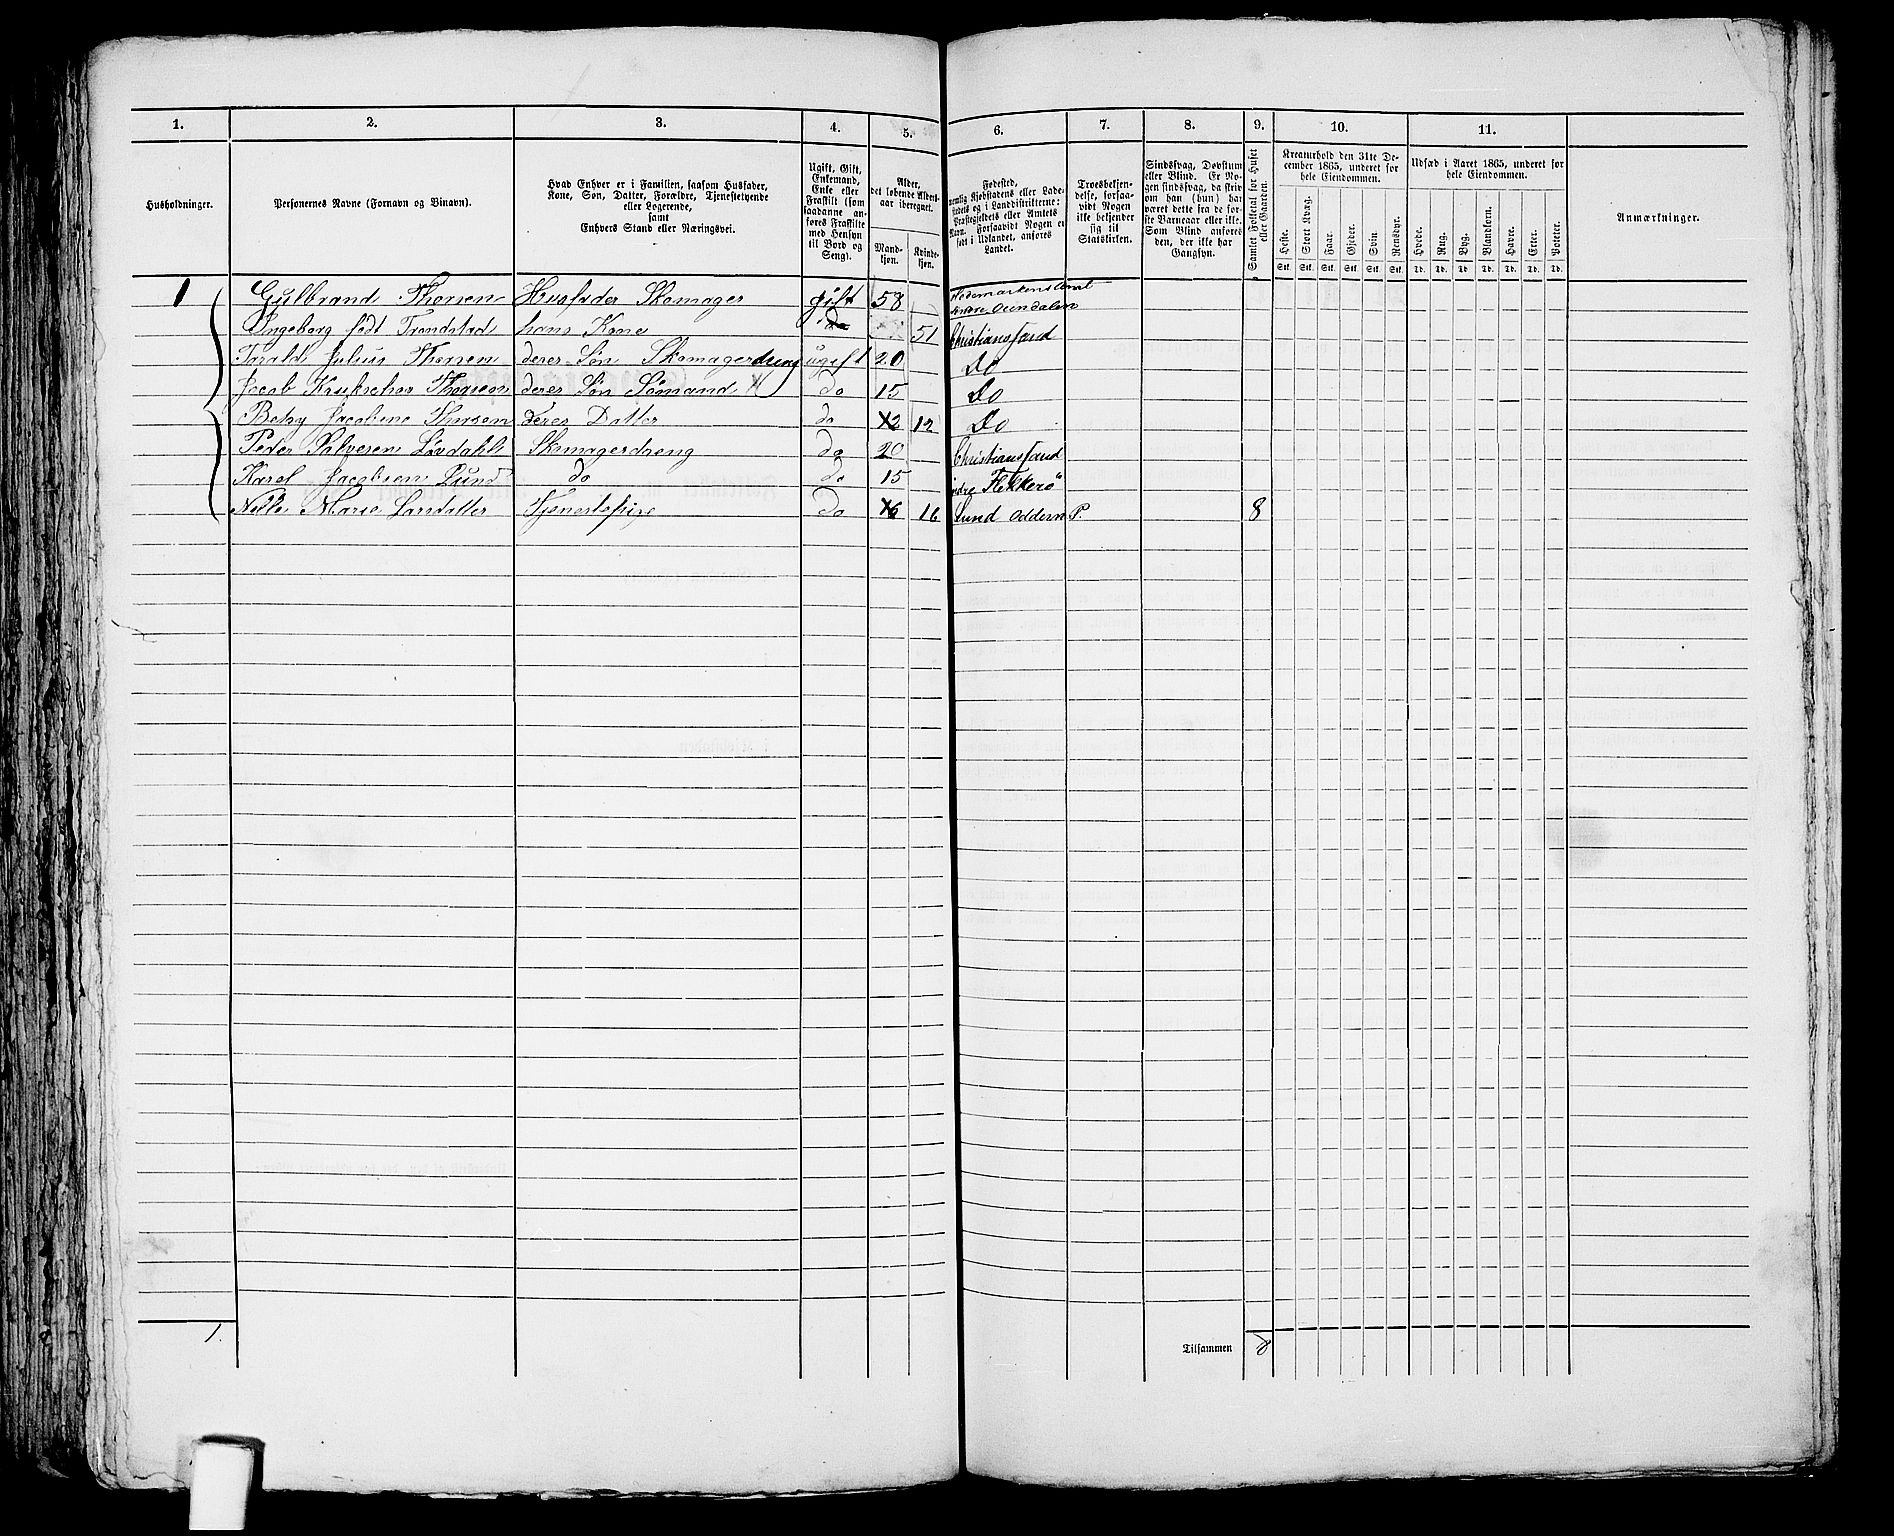 1. 2. 3. 4. 5. 6. 7. 8. 9. 10. 11.
Husholdninger.
Personernes Navne (Fornavn og Binavn).
Hvad Enhver er i Familien, saasom Husfader,
Kone, Søn, Datter, Forældre, Tjenestetyende
eller Logerende,
samt
Enhvers Stand eller Næringsvei.
Ugift, Gift,
Enkemand,
Enke eller
Fraskilt (som
saadanne an-
føres Fraskilte
med Hensyn
til Bord og
Seng).
Alder,
det løbende Alders-
aar iberegnet.
Mand-
kjøn.
Kvinde-
kjøn.
Fødested,
nemlig Kjøbstadens eller Lade-
stedets og i Landdistrikterne:
Præstegjeldets eller Amtets
Navn. Forsaavidt Nogen er
født i Udlandet, anføres
Landet.
Troesbekjen-
delse, forsaa-
vidt Nogen
ikke bekjender
sig til
Statskirken.
Sindssvag, Døvstum
eller Blind. Er No-
gen sindssvag, da skriv
om han (hun) har
været dette fra de før-
ste Barneaar eller ikke.
Som Blind anføres
den, der ikke har
Gangsyn.
Samlet Folketal for Huset
eller Gaarden.
Kreaturhold den 31te De-
cember 1865, underet for
hele Eiendommen.
Heste. Stort Kvæg. Faar. Gjeder. Svin. Rensdyr.
Stk. Stk. Stk. Stk. Stk. Stk.
Udsæd i Aaret 1865, underet for
hele Eiendommen.
Hvede. Rug. Byg. Blandkorn. Havre. Erter. Poteter.
Td. Td. Td. Td. Td. Td. Td.
Anmærkninger.
1 Gulbrand Thorsen Huusfader Skomager gift 58 Hedemarkens Amt
Ingeborg født Trondstad hans Kone do 51 Christianssand
Tarald Julius Thorsen deres Søn Skomagerdreng ugift 20 Do
Jacob Thorsen deres Søn Sømand do 15 Do
Betzy Jacobine Thorsen deres Datter do 12 12 Do
Peder Salvesen Løvdahl Skomagerdreng do 20 Christianssand
Karel Jacobsen Lund do do 15 Flekkerø
Nille Marie Larsdatter Tjenestepige do 16 16 Lund Oddern P. 8
1. Tilsammen 8